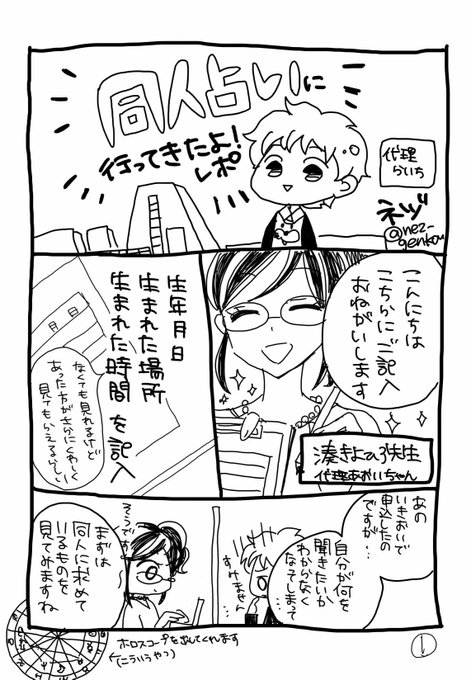 同人占いに
行ってきたよ！
レポ
代理
らいち
ネヅ
@nez_
genkou
こんにちは
こちらにご記入
おねがいします
湊きよひ弥生
代理あおいちゃん
生年月日
生まれた場所
生まれた時間を記入
月 日
なくても見れるけど
あった方がさらにくわしく
見てもらえるらしい
あの
いきおいで
申込したの
ですが…
自分が何を
聞きたいか
わからなく
なってしまって
すみません
そうですね
まずは
同人に求めて
いるものを
見てみますね
ホロスコープを出してくれます
(こういうやつ)
1